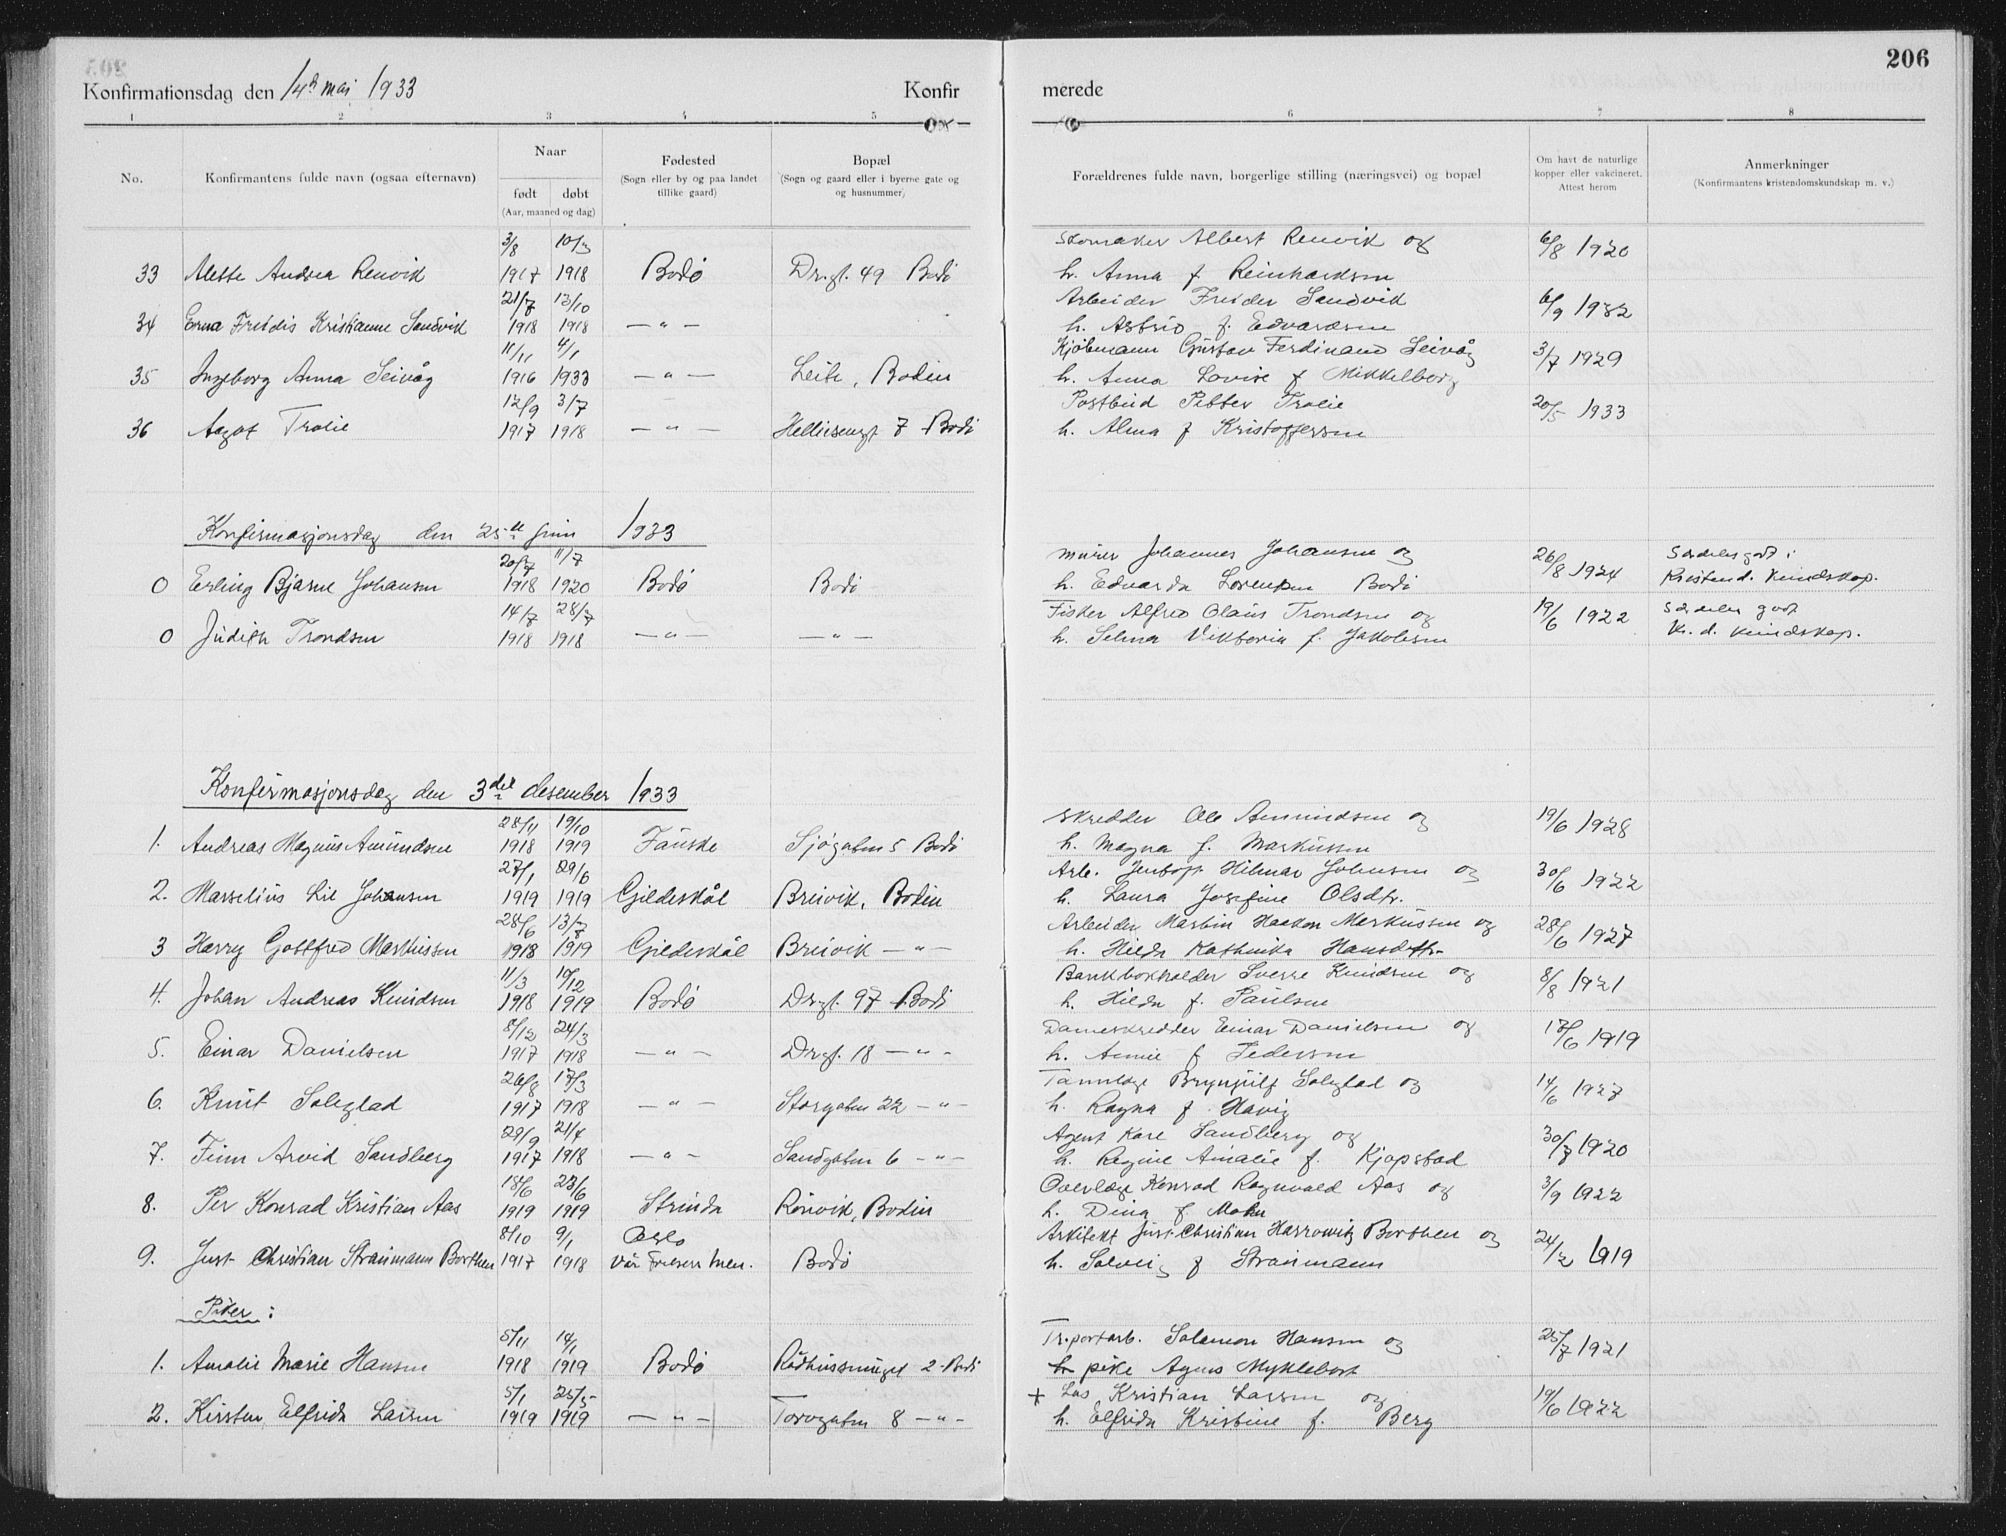 206
Konfirmationsdag den 14de mai 1933 Konfir merede
1 2 3 4 5 6 7 8
No. Konfirmantens fulde navn (ogsaa efternavn) Naar født døbt (Aar, maaned og dag) Fødested (Sogn eller by og paa landet tillike gaard) Bopæl (Sogn og gaard eller i byerne gate og og husnummer) Forældrenes fulde navn, borgerlige stilling (næringsvei) og bopæl Om havt de naturlige kopper eller vakcineret. Attest herom Anmerkninger (Konfirmantens kristendomskundskap m. v.)
3/8 10/3 Skomaker Albert Renvik og 6/8 1920
33 Alette Andrea Renvik 1917 1918 Bodø Drgt. 49 Bodø h. Anna f Reinhardsen
21/7 13/10 Arbeider Freider Sandvik 6/9 1932
34 Erna Freidis Kristianne Sandvik 1918 1918 — " — h. Astrid f. Edvardsen
11/11 4/1 Kjøbmann Gustav Ferdinand Seivåg 3/7 1929
35 Ingeborg Anna Seivåg 1916 1933 — " — Leite, Bodin h. Anna Lovise f Mikkelborg
12/9 3/7 Postbud Petter Trolie 20/5 1933
36 Aagot Trolie 1917 1918 — " — Hellisengt 7 Bodø h. Alma f Kristoffersen
Konfirmasjonsdag den 25de juni 1933
20/7 11/7 Murer Johannes Johansen og 26/8 1924 Særdeles godt i
0 Erling Bjarne Johansen 1918 1920 Bodø Bodø h. Edvarda Lorentzen Bodø Kristend. kundskap.
14/7 28/7 Fisker Alfred Olaus Trondsen og 19/6 1922 Særdeles godt
0 Judith Trondsen 1918 1918 — " — — " — h. Selma Viktoria f. Jakobsen Kr. d. kundskap.
Konfirmasjonsdag den 3die desember 1933
28/11 19/10 Skredder Ole Amundsen og 19/6 1928
1. Andreas Magnus Amundsen 1918 1919 Fauske Sjøgaten 5 Bodø h. Magna f. Markussen
27/1 29/6 Arb. Jentoft Hilmar Johnsen og 30/6 1922
2. Marselius Lie Johansen 1919 1919 Gildeskål Breivik, Bodin h. Laura Josefine Olsdtr.
28/6 13/7 Arbeider Martin Haakon Markussen og 28/6 1927
3 Harry Gottfred Markussen 1918 1919 Gildeskål Breivik — " — h. Hilda Kathinka Hansdttr.
11/3 19/12 Bankbokholder Sverre Knudsen og 8/8 1921
4. Johan Andreas Knudsen 1918 1919 Bodø Drgt. 97 Bodø h. Hilda f. Paulsen
8/12 24/3 Dameskredder Einar Danielsen og 17/6 1919
5. Einar Danielsen 1917 1918 — " — Drgt. 18 — " - h. Annie f Pedersen
26/8 17/3 Tannlæge Brynjulf Solegtad og 14/6 1927
6. Knut Solegtad 1917 1918 — " — Storgaten 22 — " — h. Ragna f. Havig
29/9 21/4 Agent Kåre Sandberg og 30/7 1920
7. Finn Arvid Sandberg 1917 1918 — " — Sandgaten 6 — " — h. Regine Amalie f. Kjøpstad
18/6 23/6 Overlæge Konrad Ragnvald Aas og 3/9 1922
8. Per Konrad Kristian Aas 1919 1919 Strinda Rønvik, Bodin h. Dina f. Mohn
8/10 9/1 Oslo Arkitekt Just Christian Harrowitz Borthen og 24/2 1919
9. Just Christian Straumann Borthen 1917 1918 Vår Frelsers men. Bodø h. Solveig f Straumann
Piker:
5/11 14/1 Tr.portarb. Salamon Hansen og 25/7 1921
1. Amalie Marie Hansen 1918 1919 Bodø Rådhussmuget 2 - Bodø h pike Agnes Myklebost
5/1 25/5 + Los Kristian Larsen og 19/6 1922
2. Kirsten Elfrida Larsen 1919 1919 — " — Torvgaten 8 — " - h. Elfrida Kristine f. Berg